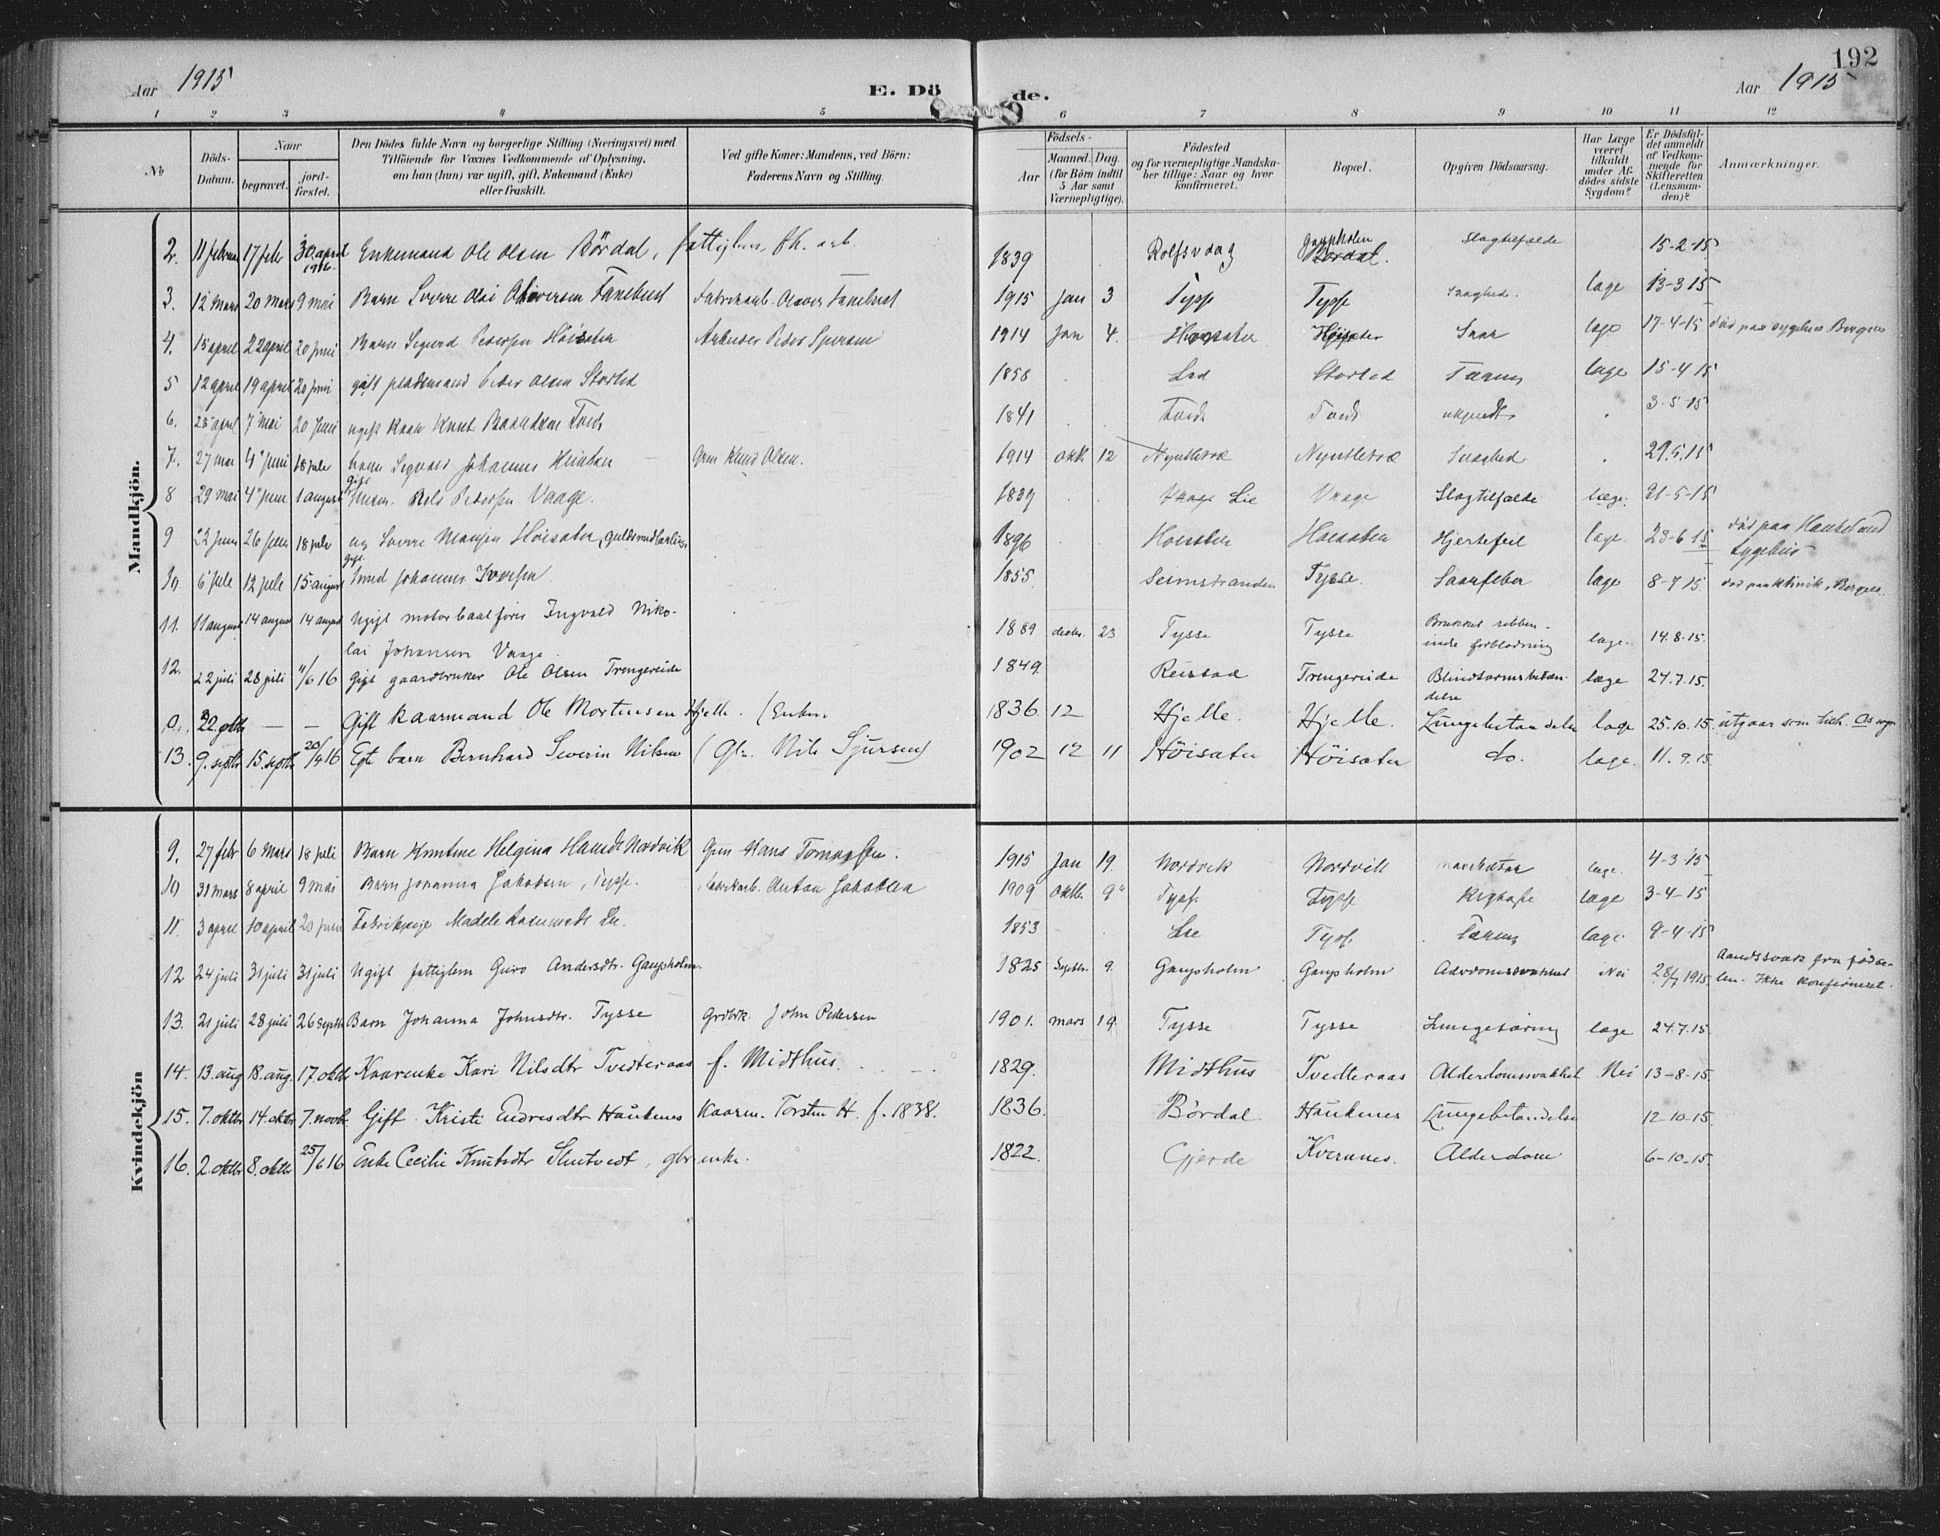 192
Aar 1915 E. Döde. Aar 1915
1 2 3 4 5 6 7 8 9 10 11 12
No
Döds-Datum.
Naar
begravet.
jord-fæstet.
Den Dödes fulde Navn og borgerlige Stilling (Næringsvei) med
Tilföiende for Voxnes Vedkommende af Oplysning,
om han (hun) var ugift, gift, Enkemand (Enke)
eller fraskilt.
Ved gifte Koner: Mandens, ved Börn:
Faderens Navn og Stilling.
Födsels-
Aar
Maaned. Dag.
(for Börn indtil
5 Aar samt
Værnepligtige).
Födested
og for værnepligtige Mandska-
ber tillige: Naar og hvor
konfirmeret.
Bopæl.
Opgiven Dödsaarsag.
Har Læge
været
tilkaldt
under Af-
dödes sidste
Sygdom?
Er Dödsfal-
det anmeldt
af Vedkom-
mende for
Skifteretten
(Lensman-
den)?
Anmærkninger.
Mandkjön.
2. 11 februar 17 febr 30 april 1916 Enkemand Ole Olsen Bördal, fattiglem, fh. arb. 1839 Rolfsvaag Gaupholm Slagtilfælde 15-2-15
3. 12 mars 20 mars 9 mai Barn Sverre Olai Oliversen Fanebust Fabrikarb. Oliver Fanebust 1915 Jan 3 Tysse Tysse Svaghed. læge 13-3-15
4. 15 april 22 april 20 juni Barn Sigurd Pedersen Höisæter Arbeider Peder 1914 Jan 4. Höisæter Höisæter læge 17-4-15 död paa sygehus Bergen
5 12 april 19 april 20 juni gift Peder Olsen Storlid 1858 Storlid Tæring læge 15-4-15
6. 28 april 7 mai 20 juni ugift Knut 1841 ukjendt 3-5-15
7. 27 mai 4 juni 18 juli barn Sigvald Johannes Gbm Knud Olsen. 1914 okt 12 Nyutletræ Nyutletræ Svaghed 29.5.15
8 29 mai 4 juni 1 august gift Pedersen Vaage. 1839 Vaage Slagtilfælde læge. 31-5-15
9 22 juni 26 juni 18 juli ug Sverre Monsen Höisæter, guldsmedlærling, 1896 Höisæter Höisæter Hjertefeil læge. 28-6-15 död paa Haukeland sygehus
10. 6 juli 12 juli 15 august gift Smed Johannes Iversen 1855 Seimstranden Tysse. læge 8-7-15. död paa klinik, Bergen.
11. 11 august 14 august 14 august Ugift motorbaatförer Ingvald Niko-
lai Johansen Vaage. 1889 decbr. 23 Tysse Tysse Brukket ribben -
indre forblödning læge. 14.8.15.
12. 22 juli 28 juli 11/6 16 Gift gaardbruker Ole Olsen Trengereide 1849. Reistad Trengereide Blindtarmsbetæn-
delse læge 24.7.15.
0. 22 oktb — — Gift kaarmand Ole Mortensen Hjelle. 1836 12 Hjelle. Hjelle. Lungebetændelse læge 25.10.15. utgaar som tilh. Os sogn
13. 9. septb 15. septb 16 Egt barn Bernhard Severin Nilsen (Gbr. Nils Sjursen) 1902 12 11 Höisæter Höisæter do. læge. 11.9.15.
Kvindekjön
9. 27 febr 6 Mars 18 juli Barn Helgina Nordvik Gbm Hans 1915 Jan 19. Nordvik Nordvik læge. 4-3-15
10 31 mars 8 april 9 mai Barn Johanna Jakobsen, Tysse. Anton Jakobsen 1909 oktb. 9 Tysse Tysse læge 3-4-15
11. 3 april 10 april 20 juni Fabrikpige 1853 Lie Tysse Tæring læge 9-4-15
12 24 juli 31 juli 31 juli Ugift fattiglem Guro Andersdtr. Gaupholm. 1825 Septbr. 9. Gaupholm Gaupholm Alderdomssvakhet Nei 28/7 1915 Aandssvak fra födse-
len. Ikke konfirmeret.
13. 21 juli 28 juli 26 septb Barn Johanna Johnsdtr. Tysse Grdbrk. John Pedersen 1901. mars 19. Tysse Tysse Lungetæring læge 24.7.15.
14. 13. aug 18. aug. 17. oktbr Kaarenke Kari Nilsdtr Tvedteraas f. Midthus. 1829. Midthus Tvedteraas Alderdomssvakhet Nei 13-8-15.
15. 7. oktbr 14. oktbr 7. novbr. Gift Kristi Endresdtr Haukenes Kaarm. Torsten H. f. 1838. 1836. Bördal Haukenes Lungebetændelse 12-10-15.
16. 2 oktbr 8. oktbr 25/6 16 Enke Cecilie Knutsdtr, gbrenke. 1822. Gjerde Kvernnes. Alderdom 6-10-15.